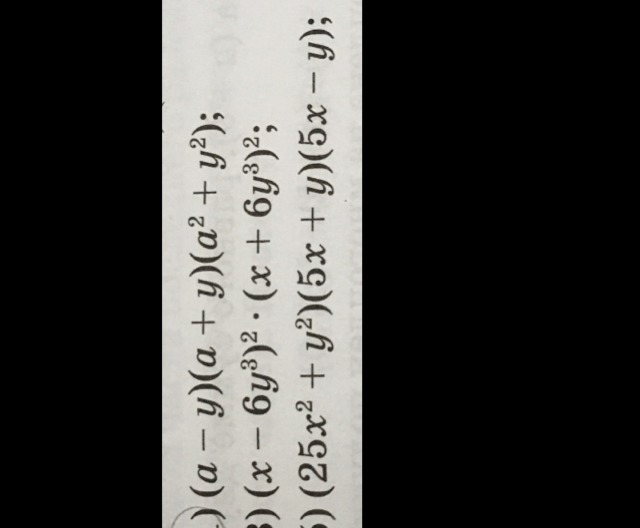 ) (a − y)(a + y)(a² + y²);
3) (x − 6y³)² · (x + 6y³)²;
5) (25x² + y²)(5x + y)(5x − y);